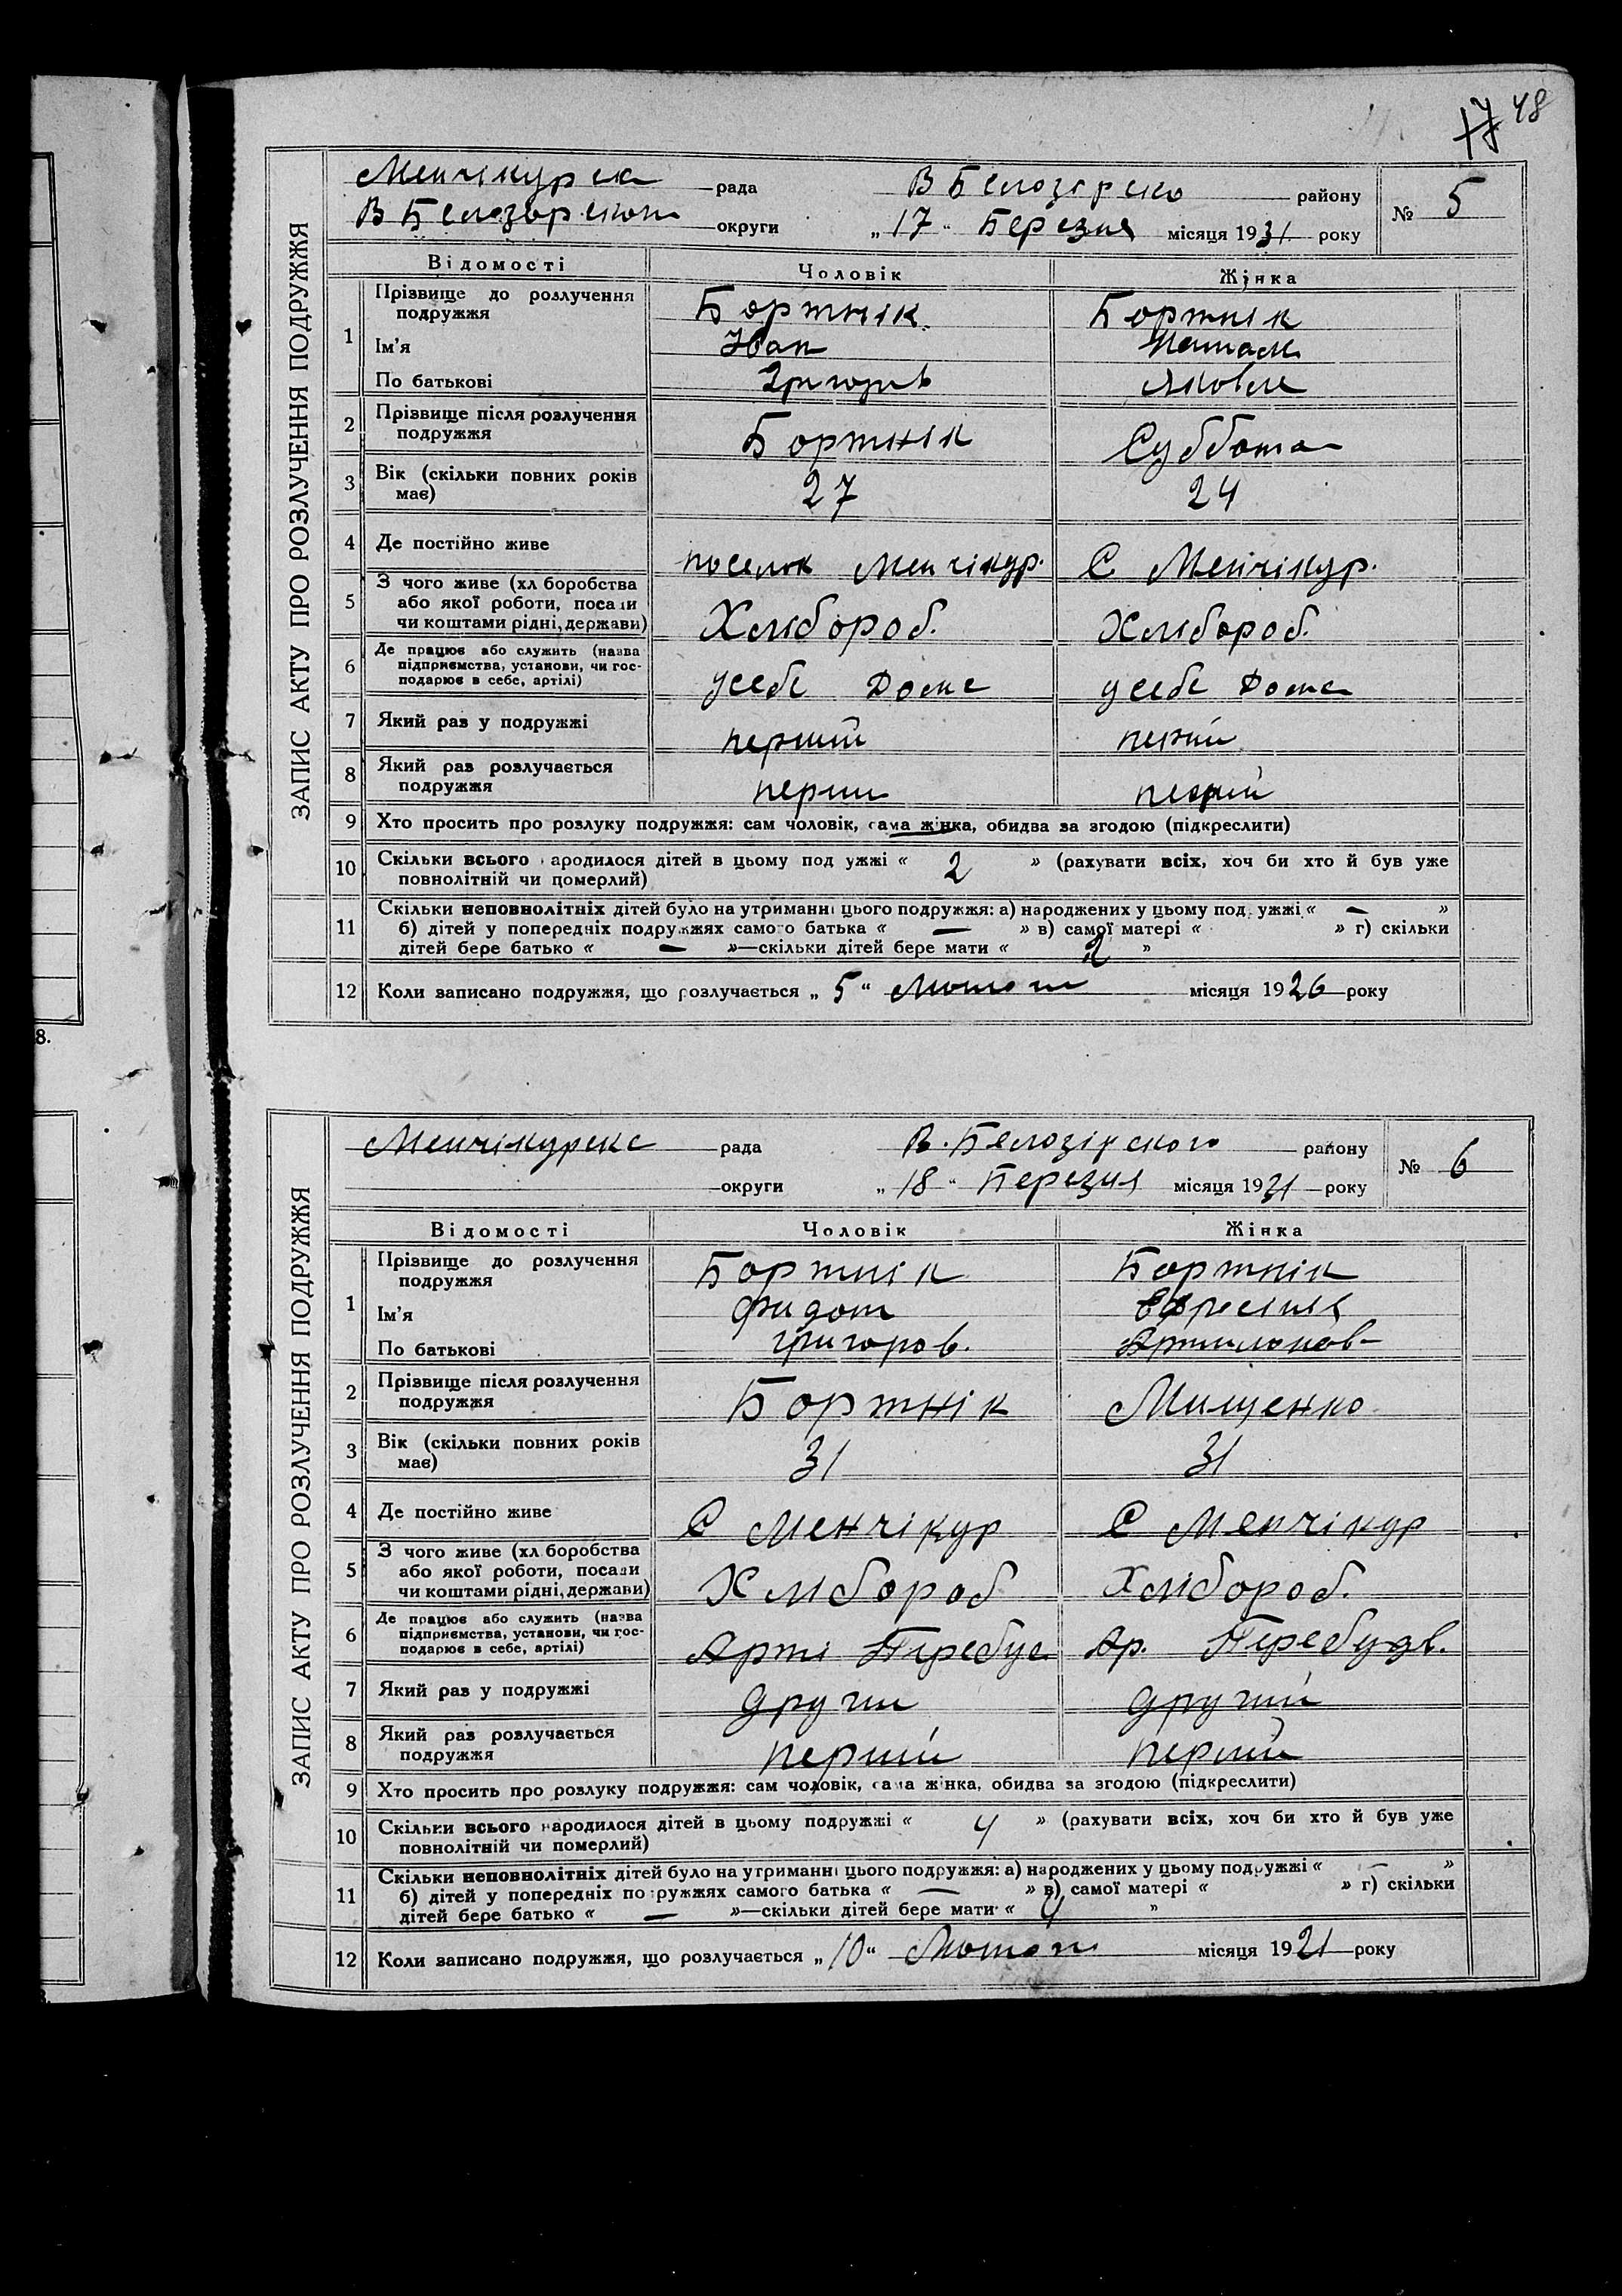 17 48
ЗАПИС АКТУ ПРО РОЗЛУЧЕННЯ ПОДРУЖЖЯ
Менчікурска рада В Белозорско району № 5
В Белозорского округи „17“ Березня місяця 1931 року
Відомості Чоловік Жінка
1 Прізвище до розлучення подружжя Бортнік Бортнік
Ім'я Іван
По батькові Григорів Яковле
2 Прізвище після розлучення подружжя Бортнік Суббота
3 Вік (скільки повних років має) 27 24
4 Де постійно живе поселок Менчікур. С Менчікур.
5 З чого живе (хл боробства або якої роботи, посади чи коштами рідні, держави) Хлібороб. Хлібороб.
6 Де працює або служить (назва підприємства, установи, чи господарює в себе, артілі) усебе Доме усебе Доме
7 Який раз у подружжі перший перий
8 Який раз розлучається подружжя перши перий
9 Хто просить про розлуку подружжя: сам чоловік, сама жінка, обидва за згодою (підкреслити)
10 Скільки всього ародилося дітей в цьому под ужжі « 2 » (рахувати всіх, хоч би хто й був уже
повнолітній чи померлий)
11 Скільки неповнолітніх дітей було на утриманні цього подружжя: а) народжених у цьому под ужжі « — »
б) дітей у попередніх подружжях самого батька « — » в) самої матері « » г) скільки
дітей бере батько « — »—скільки дітей бере мати « 2 »
12 Коли записано подружжя, що розлучається „5“ Лютого місяця 1926 року
8.
ЗАПИС АКТУ ПРО РОЗЛУЧЕННЯ ПОДРУЖЖЯ
Менчікурске рада В. Белозірского району № 6
округи „18“ Березня місяця 1931 року
Відомості Чоловік Жінка
1 Прізвище до розлучення подружжя Бортнік Бортнік
Ім'я Фидот Ефресиня
По батькові Григоров. Артимонов-
2 Прізвище після розлучення подружжя Бортнік Мищенко
3 Вік (скільки повних років має) 31 31
4 Де постійно живе С Менчікур С Менчікур
5 З чого живе (хл боробства або якої роботи, посади чи коштами рідні, держави) Хлібороб Хлібороб.
6 Де працює або служить (назва підприємства, установи, чи господарює в себе, артілі) Арті Перебуд Ар. Перебудв.
7 Який раз у подружжі други другий
8 Який раз розлучається подружжя перший перший
9 Хто просить про розлуку подружжя: сам чоловік, сама жінка, обидва за згодою (підкреслити)
10 Скільки всього народилося дітей в цьому подружжі « 4 » (рахувати всіх, хоч би хто й був уже
повнолітній чи померлий)
11 Скільки неповнолітніх дітей було на утриманні цього подружжя: а) народжених у цьому подружжі « — »
б) дітей у попередніх по ружжях самого батька « — » в) самої матері « » г) скільки
дітей бере батько « — »—скільки дітей бере мати « 4 »
12 Коли записано подружжя, що розлучається „10“ Лютого місяця 1921 року